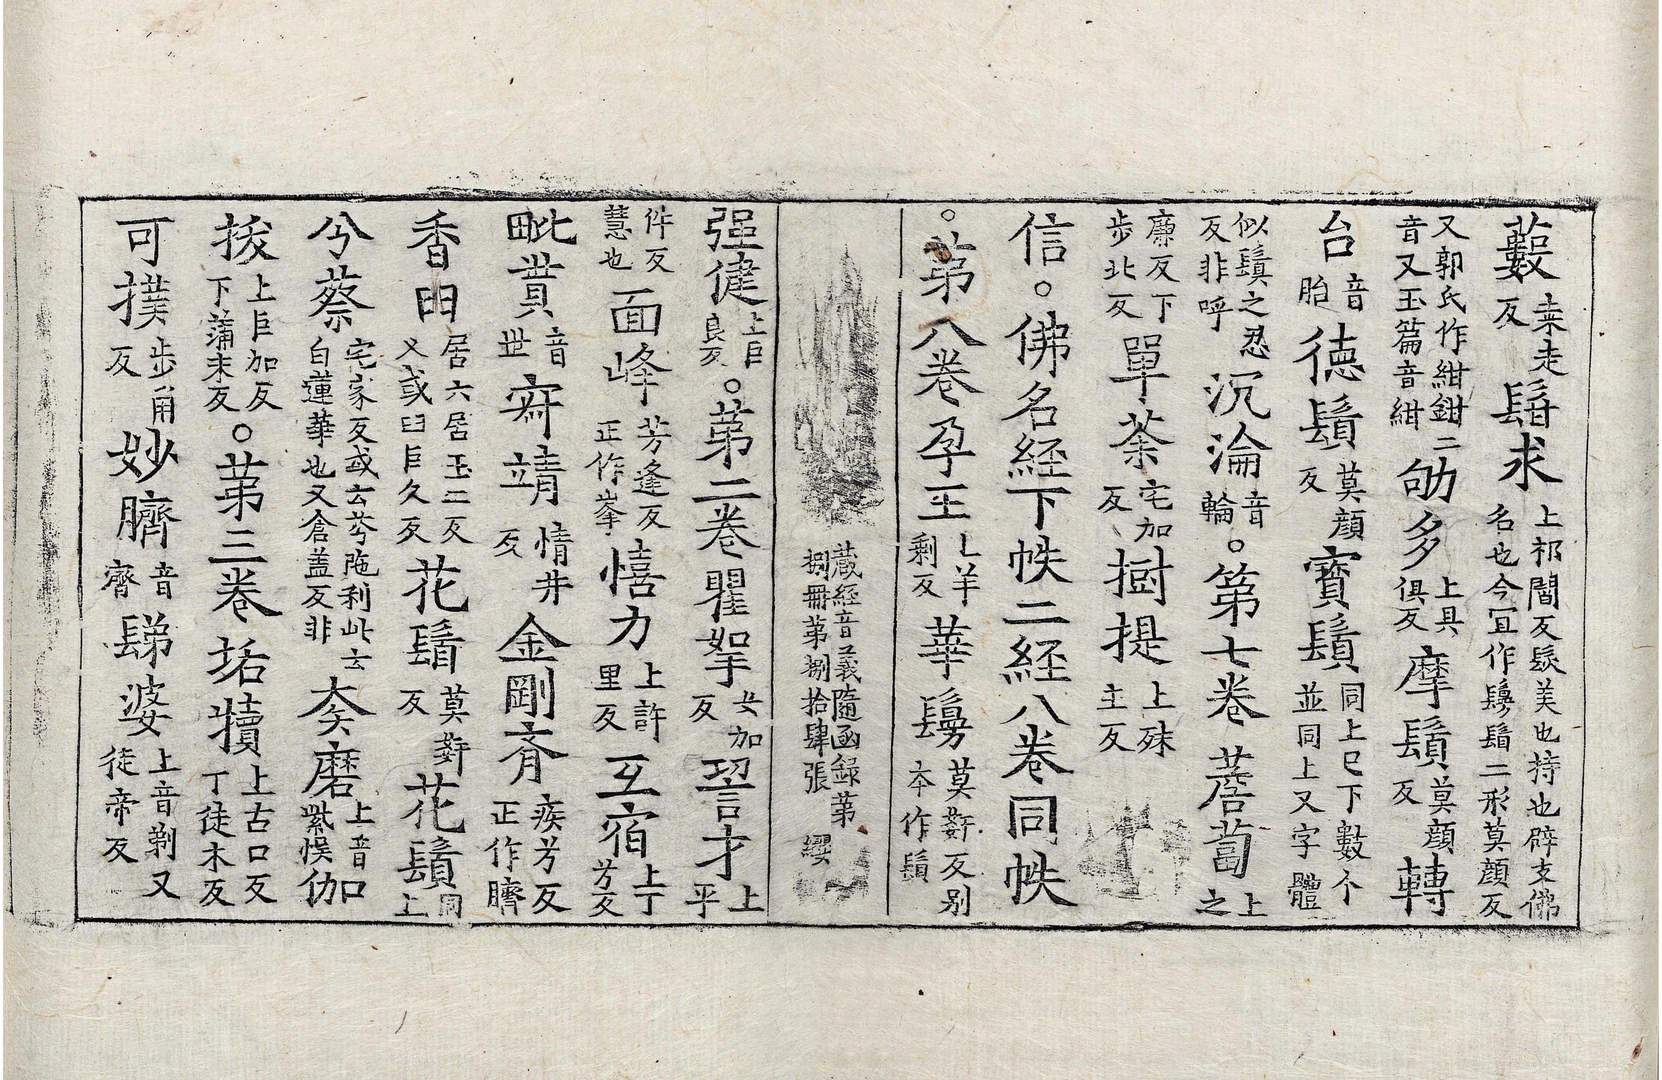 藪桒走反髯求上祁閻反髮美也持也辟支佛名也今冝作鬘䰅二形莫顔反
又郭氏作紺鉗二音又玉篇音紺劬多上具俱反摩鬚莫顔反轉
台音胎徳鬚莫顔反寳鬚同上巳下數个並同上又字體
似鬒之忍反非呼沉淪音輪。第七卷薝蔔上之
廉反下步北反單荼宅加反樹提上殊主反
信。佛名經下帙二經八卷同帙
。苐八卷孕王上羊剩反華鬘莫䣛反别本作鬚
蔵經音義隨函録苐捌冊苐捌拾肆張 纓
强健上巨良反。苐二卷瞿挐女加反䛒才上乎
件反慧也面峰芳逢反正作峯憘力上許里反互宿上丁芳文
毗貰音世㝛靖情井反金剛斉疾芳反正作臍
香𦥑居六居玉二反又或臼巨久反花䰅莫䣛反花鬚同上
兮蔡宅家反或云芬陁利此云白蓮華也又倉盖反非夌磨上音紫悮伽
拔上巨加反下蒲末反。苐三卷垢犢上古口反丁徒木反
可撲步角反妙臍音齊髢婆上音剃又徒帝反